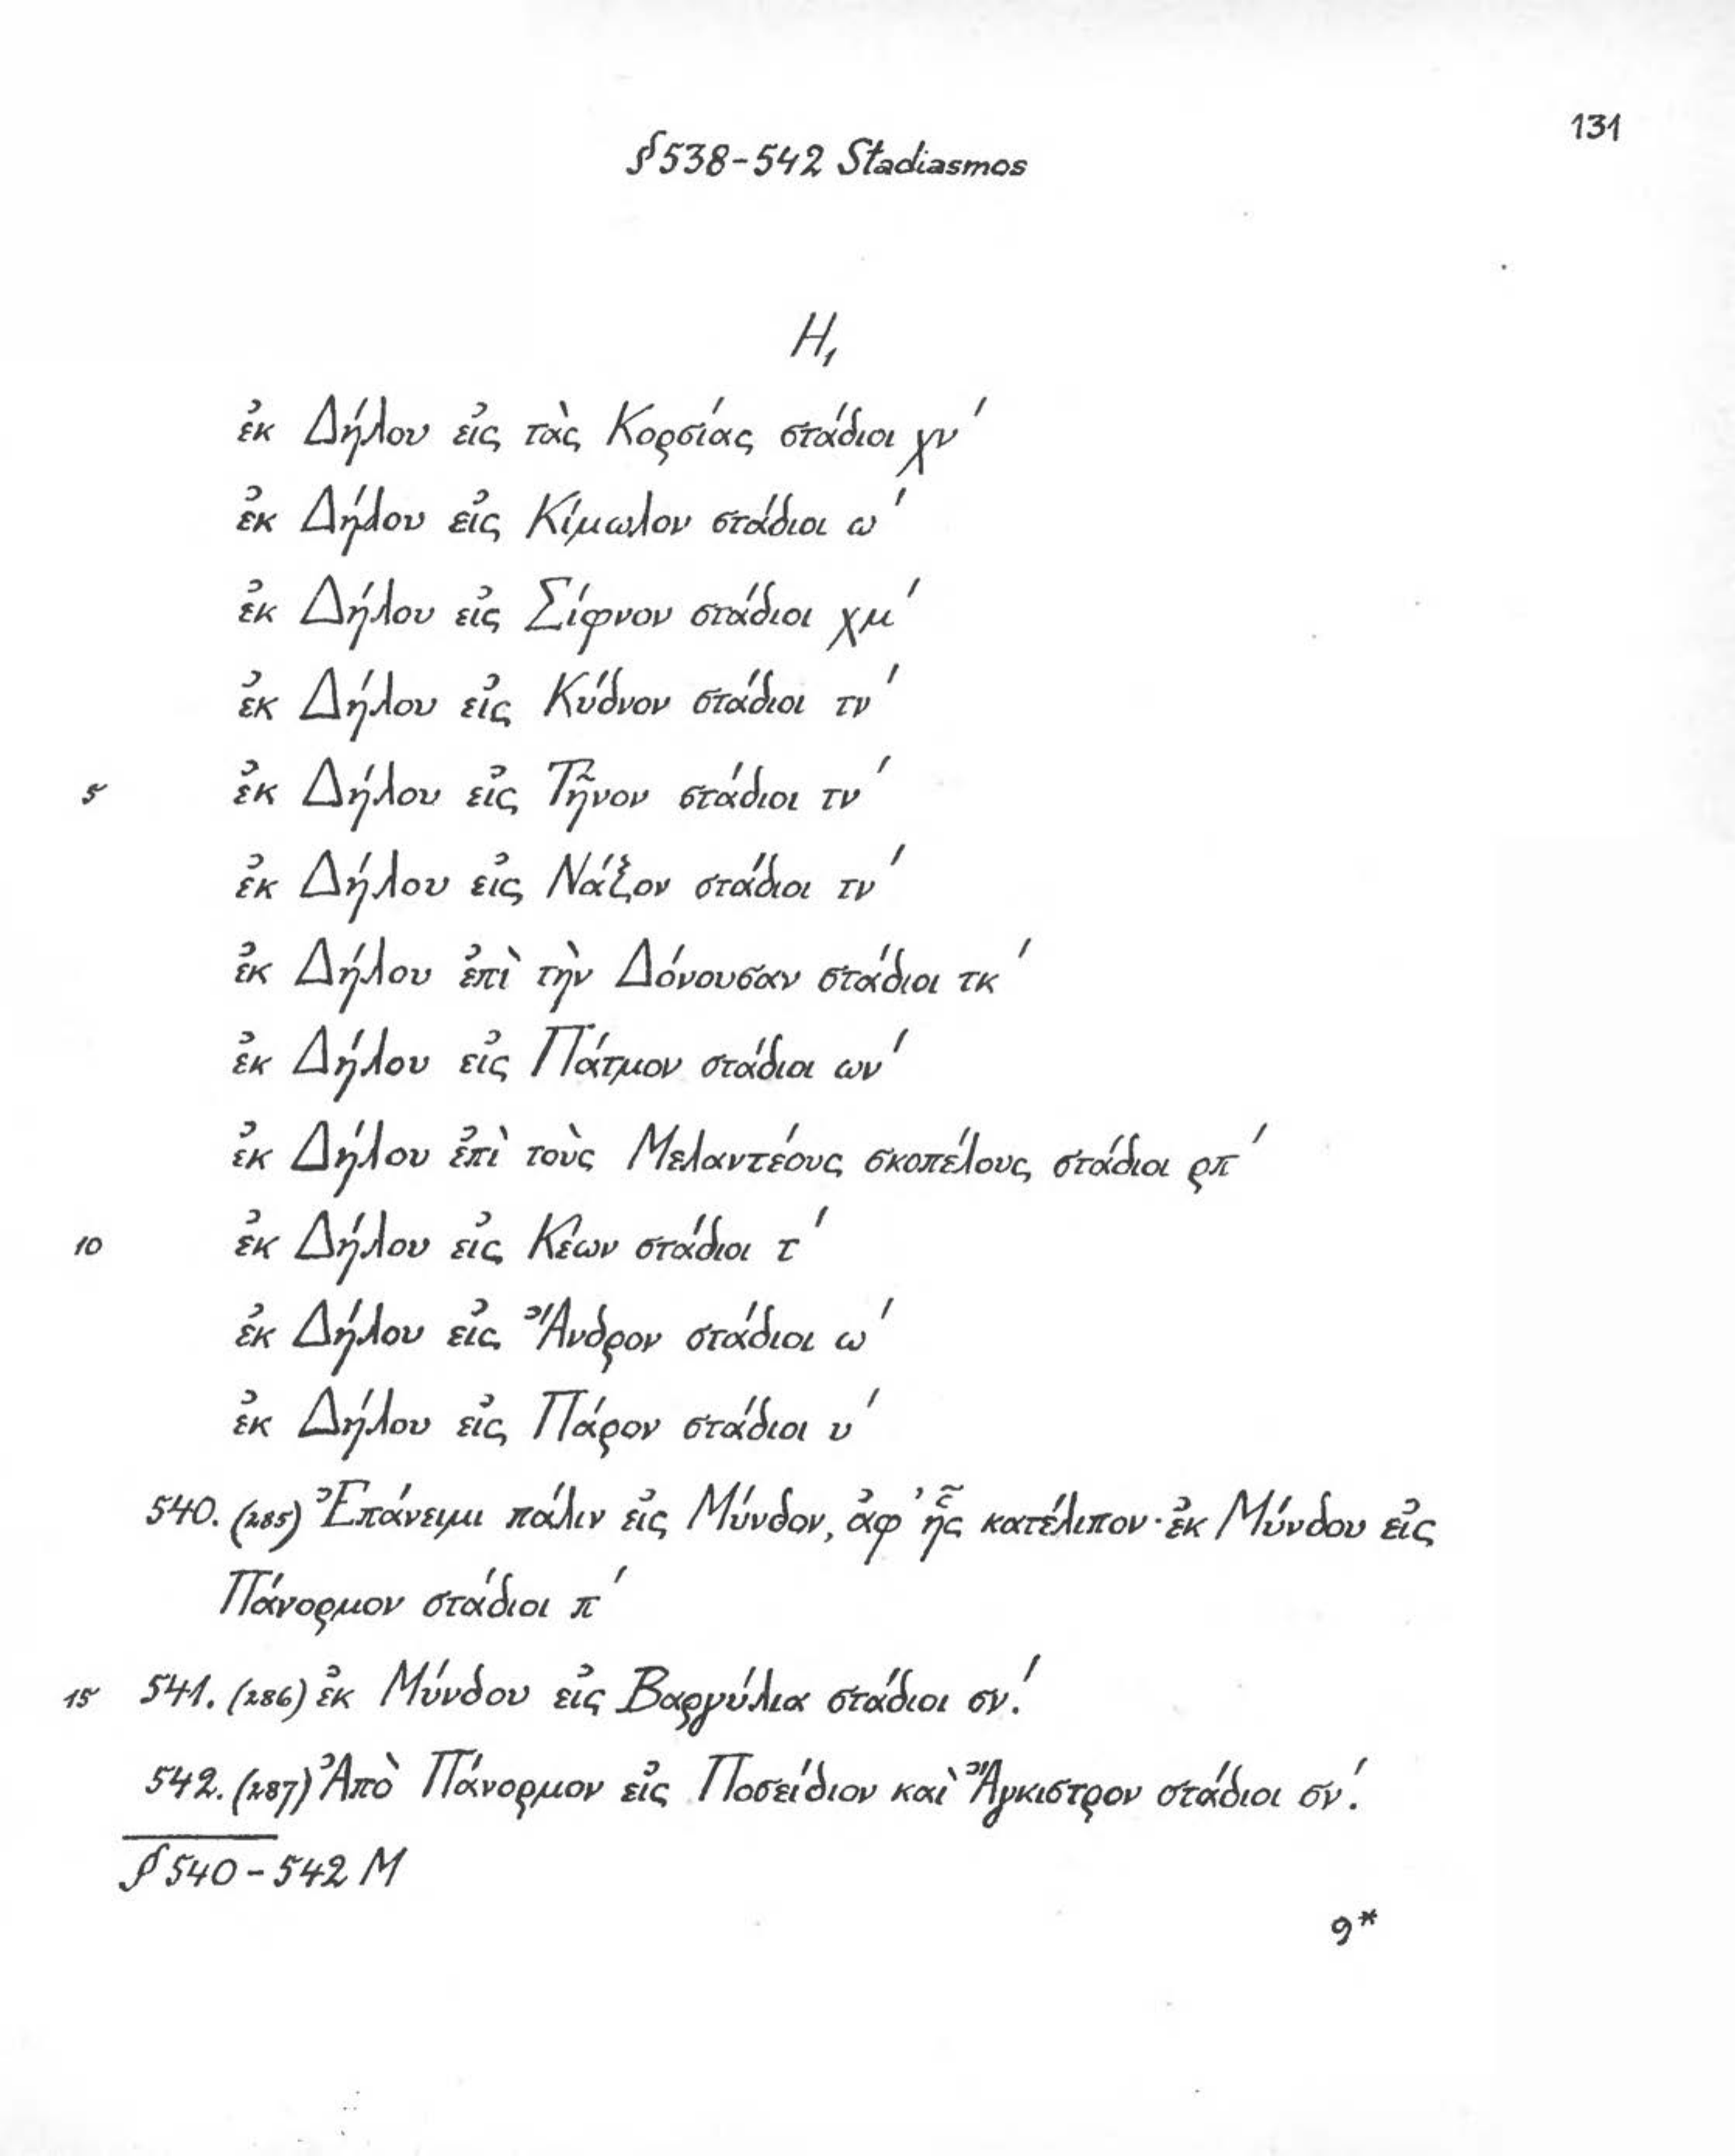 131
§ 538-542 Stadiasmos
H₁
ἐκ Δήλου εἰς τὰς Κορσίας στάδιοι χν′
ἐκ Δήλου εἰς Κίμωλον στάδιοι ω′
ἐκ Δήλου εἰς Σίφνον στάδιοι χμ′
ἐκ Δήλου εἰς Κύδνον στάδιοι τν′
5 ἐκ Δήλου εἰς Τῆνον στάδιοι τν′
ἐκ Δήλου εἰς Νάξον στάδιοι τν′
ἐκ Δήλου ἐπὶ τὴν Δόνουσαν στάδιοι τκ′
ἐκ Δήλου εἰς Πάτμον στάδιοι ων′
ἐκ Δήλου ἐπὶ τοὺς Μελαντέους σκοπέλους στάδιοι ρπ′
10 ἐκ Δήλου εἰς Κέων στάδιοι τ′
ἐκ Δήλου εἰς Ἄνδρον στάδιοι ω′
ἐκ Δήλου εἰς Πάρον στάδιοι υ′
540. (285) Ἐπάνειμι πάλιν εἰς Μύνδον, ἀφ' ἧς κατέλιπον· ἐκ Μύνδου εἰς
Πάνορμον στάδιοι π′
15 541. (286) ἐκ Μύνδου εἰς Βαργύλια στάδιοι σν′.
542. (287) Ἀπὸ Πάνορμον εἰς Ποσείδιον καὶ Ἄγκιστρον στάδιοι σν′.
§ 540-542 M
9*